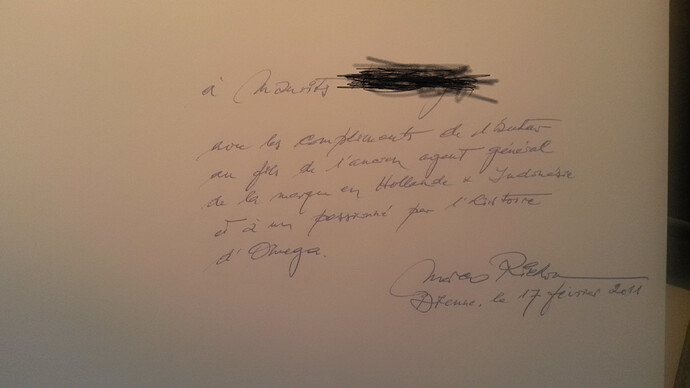 à Maurits
avec les compliments de l'auteur
au fils de l'ancien agent général
de la marque en Hollande & Indonésie
et à un passionné par l'histoire
d'Omega.
Marco Richon
Bienne, le 17 février 2011